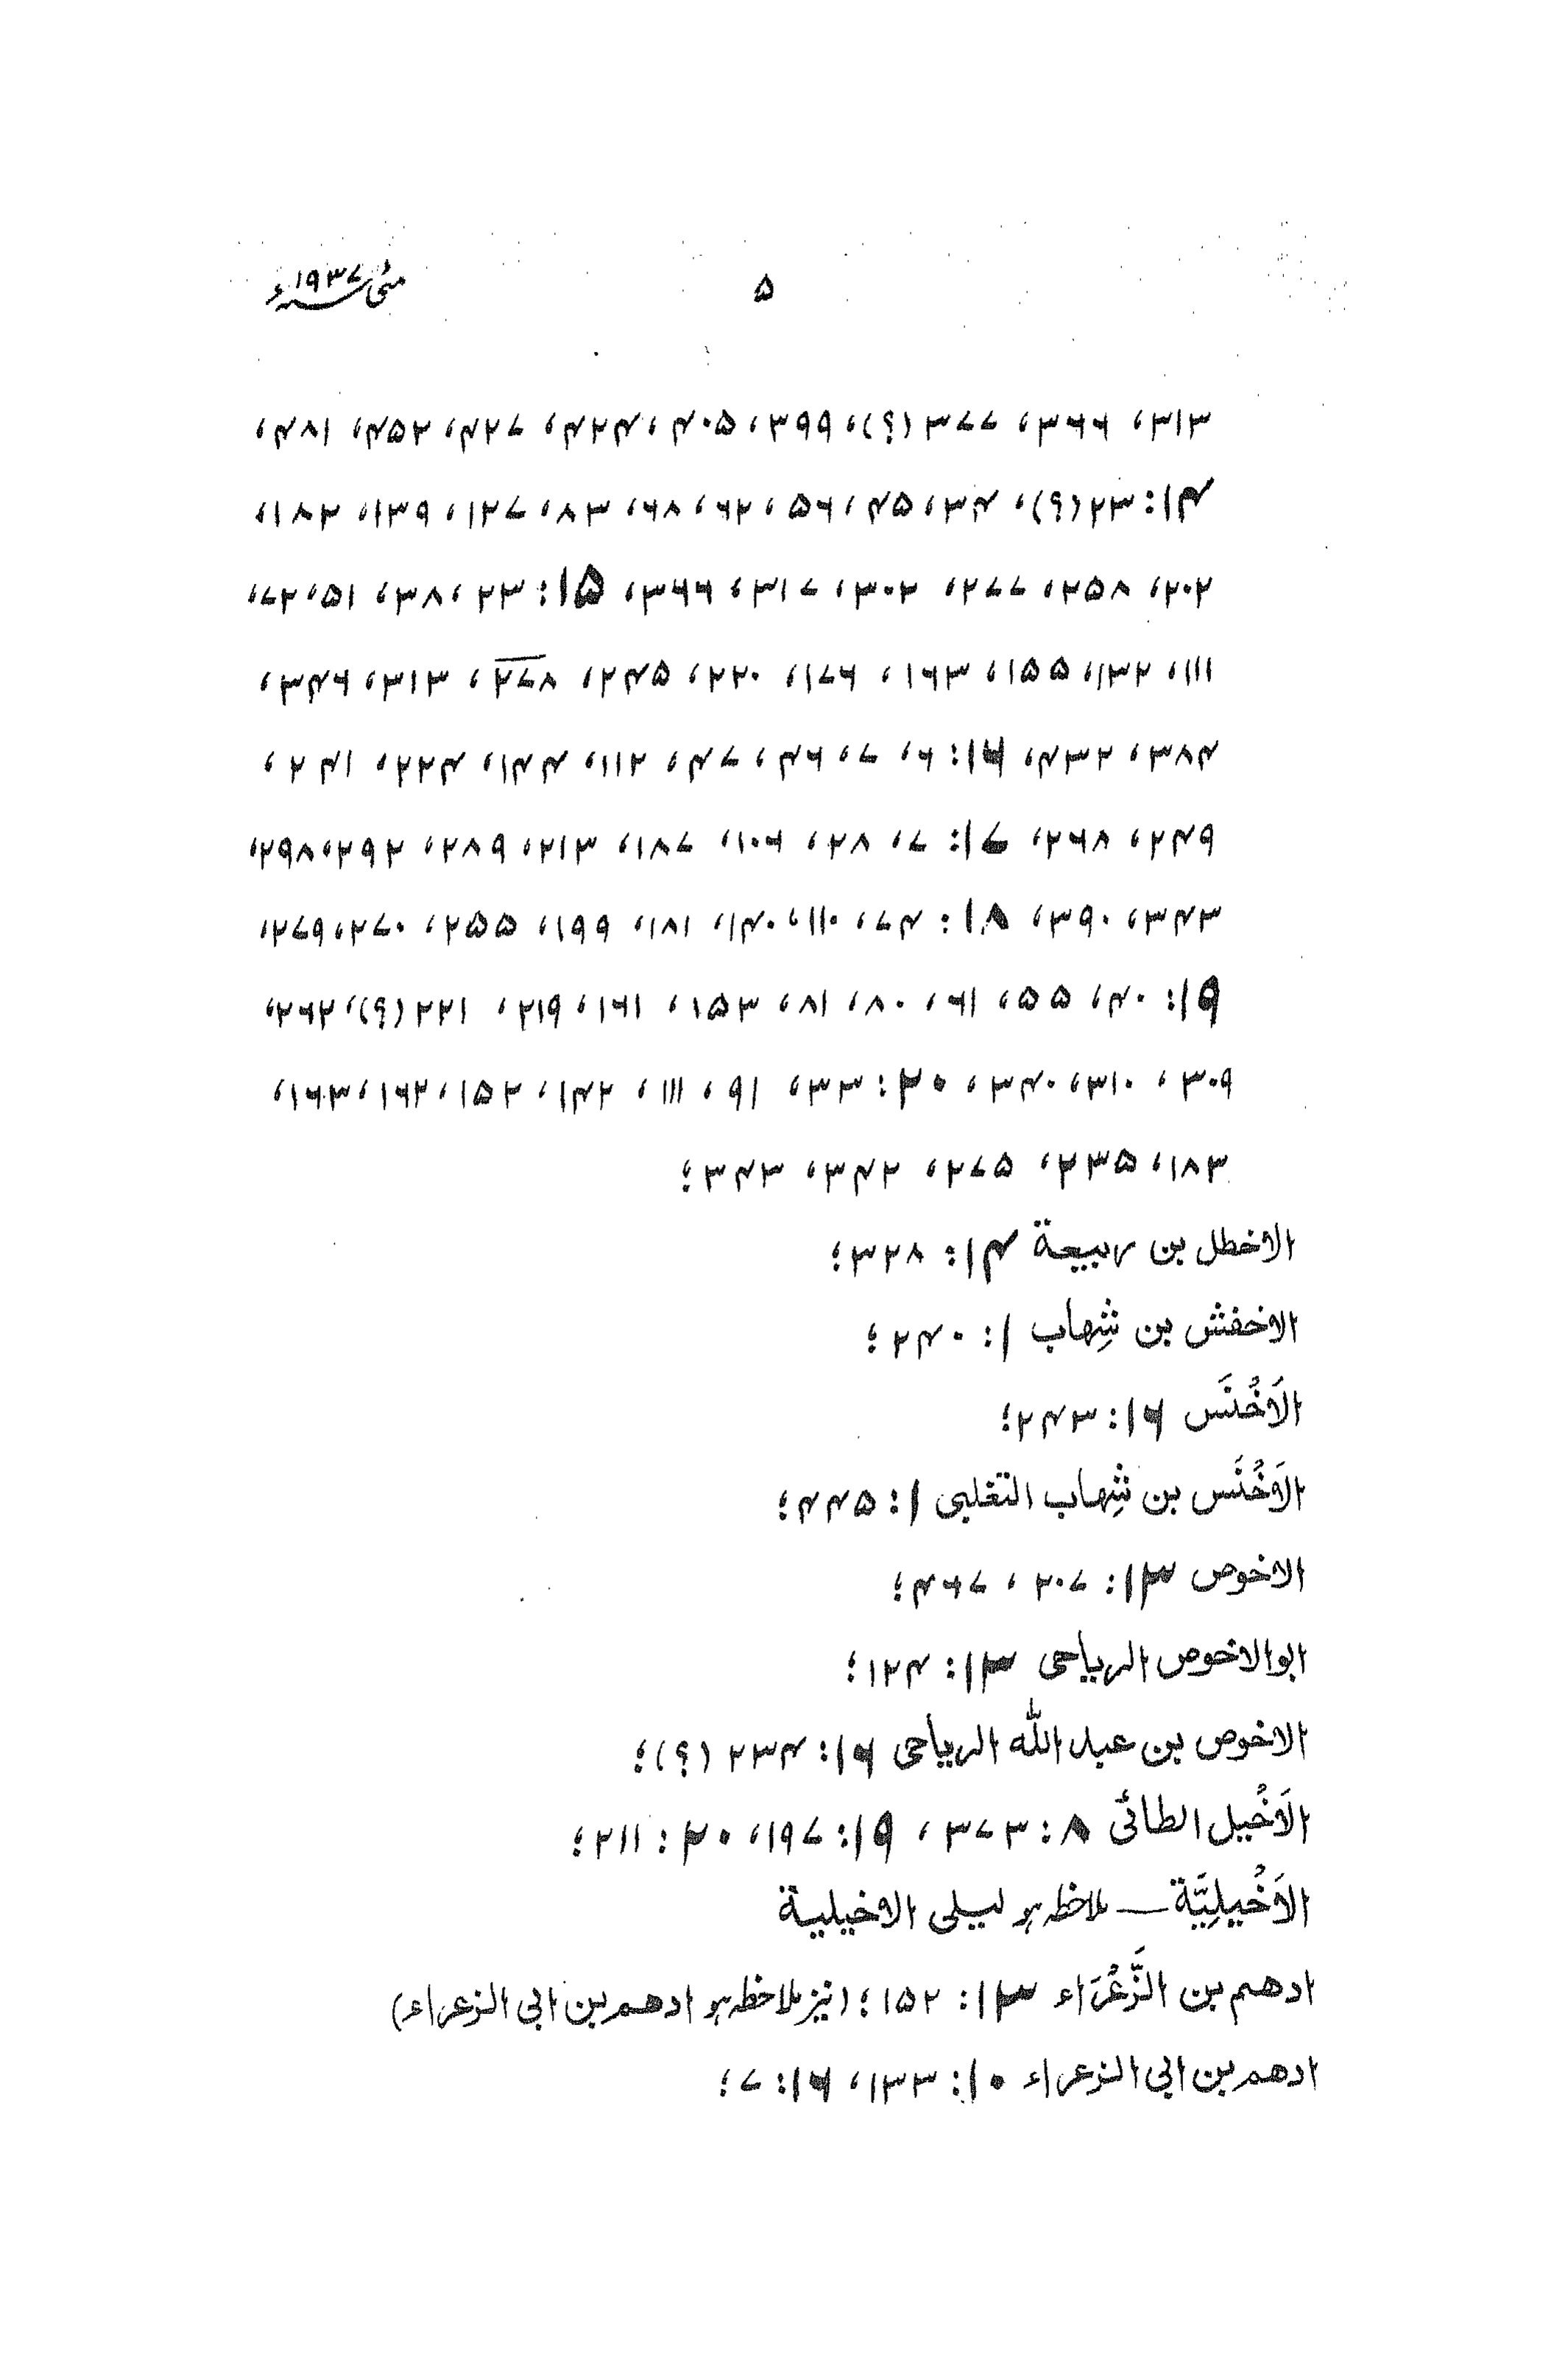 مئی ۱۹۳۷ء ۵
۳۱۳، ۳۶۶، ۳۷۷ (؟)، ۳۹۹، ۴۰۵، ۴۲۴، ۴۲۷، ۴۵۲، ۴۸۱،
۱۴: ۲۳ (؟)، ۳۴، ۴۵، ۵۶، ۶۲، ۶۸، ۸۳، ۱۲۷، ۱۳۹، ۱۸۲،
۲۰۲، ۲۵۸، ۲۷۷، ۳۰۲، ۳۱۷، ۳۶۶، ۱۵: ۲۳، ۳۸، ۵۱، ۷۲،
۱۱۱، ۱۳۲، ۱۵۵، ۱۶۳، ۱۷۶، ۲۲۰، ۲۴۵، ۲۷۸، ۳۱۳، ۳۴۶،
۳۸۴، ۴۳۲، ۱۶: ۶، ۷، ۴۶، ۴۷، ۱۱۲، ۱۴۴، ۲۲۴، ۲۴۱،
۲۴۹، ۲۶۸، ۱۷: ۷، ۲۸، ۱۰۶، ۱۸۷، ۲۱۳، ۲۸۹، ۲۹۲، ۲۹۸،
۳۴۳، ۳۹۰، ۱۸: ۷۴، ۱۱۰، ۱۴۰، ۱۸۱، ۱۹۹، ۲۵۵، ۲۷۰، ۲۷۹،
۱۹: ۴۰، ۵۵، ۶۱، ۸۰، ۸۱، ۱۵۳، ۱۶۱، ۲۱۹، ۲۲۱ (؟)، ۲۶۲،
۳۰۹، ۳۱۰، ۳۴۰، ۲۰: ۳۳، ۹۱، ۱۱۱، ۱۴۲، ۱۵۲، ۱۶۲، ۱۶۳،
۱۸۳، ۲۳۵، ۲۷۵، ۳۴۲، ۳۴۳؛
الاخطل بن ربیعة ۱۴: ۳۲۸؛
الاخفش بن شِهاب ۱: ۲۴۰؛
الاَخْنَس ۱۶: ۲۴۳؛
الاَخْنَس بن شِهاب التغلبی ۱: ۴۴۵؛
الاخوص ۱۳: ۲۰۷، ۴۶۷؛
ابوالاخوص الریاحی ۱۳: ۱۲۴؛
الاخوص بن عبد الله الریاحی ۱۶: ۲۳۴ (؟)؛
الاَخْیل الطائی ۸: ۳۷۳، ۱۹: ۱۹۷، ۲۰: ۲۱۱؛
الاَخْیلِیَّة — ملاحظہ ہو لیلی الاخیلیة
ادهم بن الزَّعْرَاء ۱۳: ۱۵۲؛ (نیز ملاحظہ ہو ادهم بن ابی الزعراء)
ادهم بن ابی الزعراء ۱۰: ۱۳۳، ۱۶: ۷؛